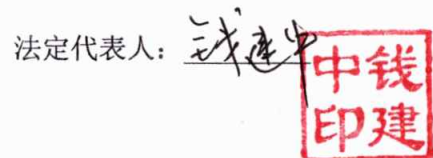 法定代表人：钱建中
钱建
中印